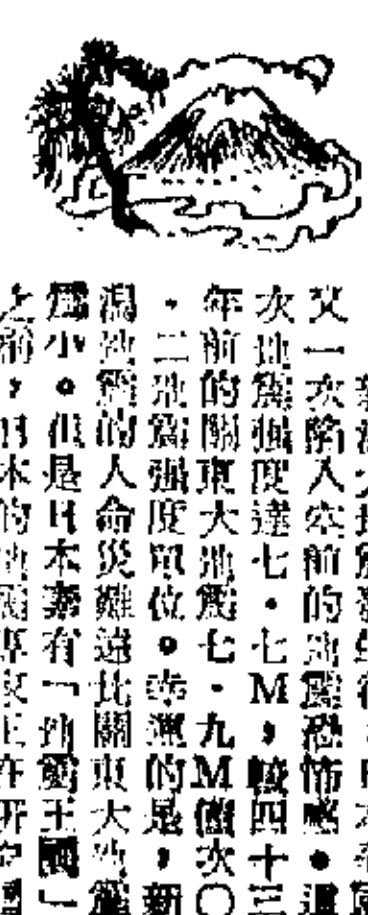 新潟大地震發生後，日本
又一次陷入空前的地震恐怖感。這
次地震强度達七·七M，較四十三
年前的關東大地震七·九M僅次〇
·二地震强度單位。幸運的是，新
潟地震的人命災難遠比關東大地震
爲小。但是日本素有「地震王國」
之稱，日本的地震專家正在研究